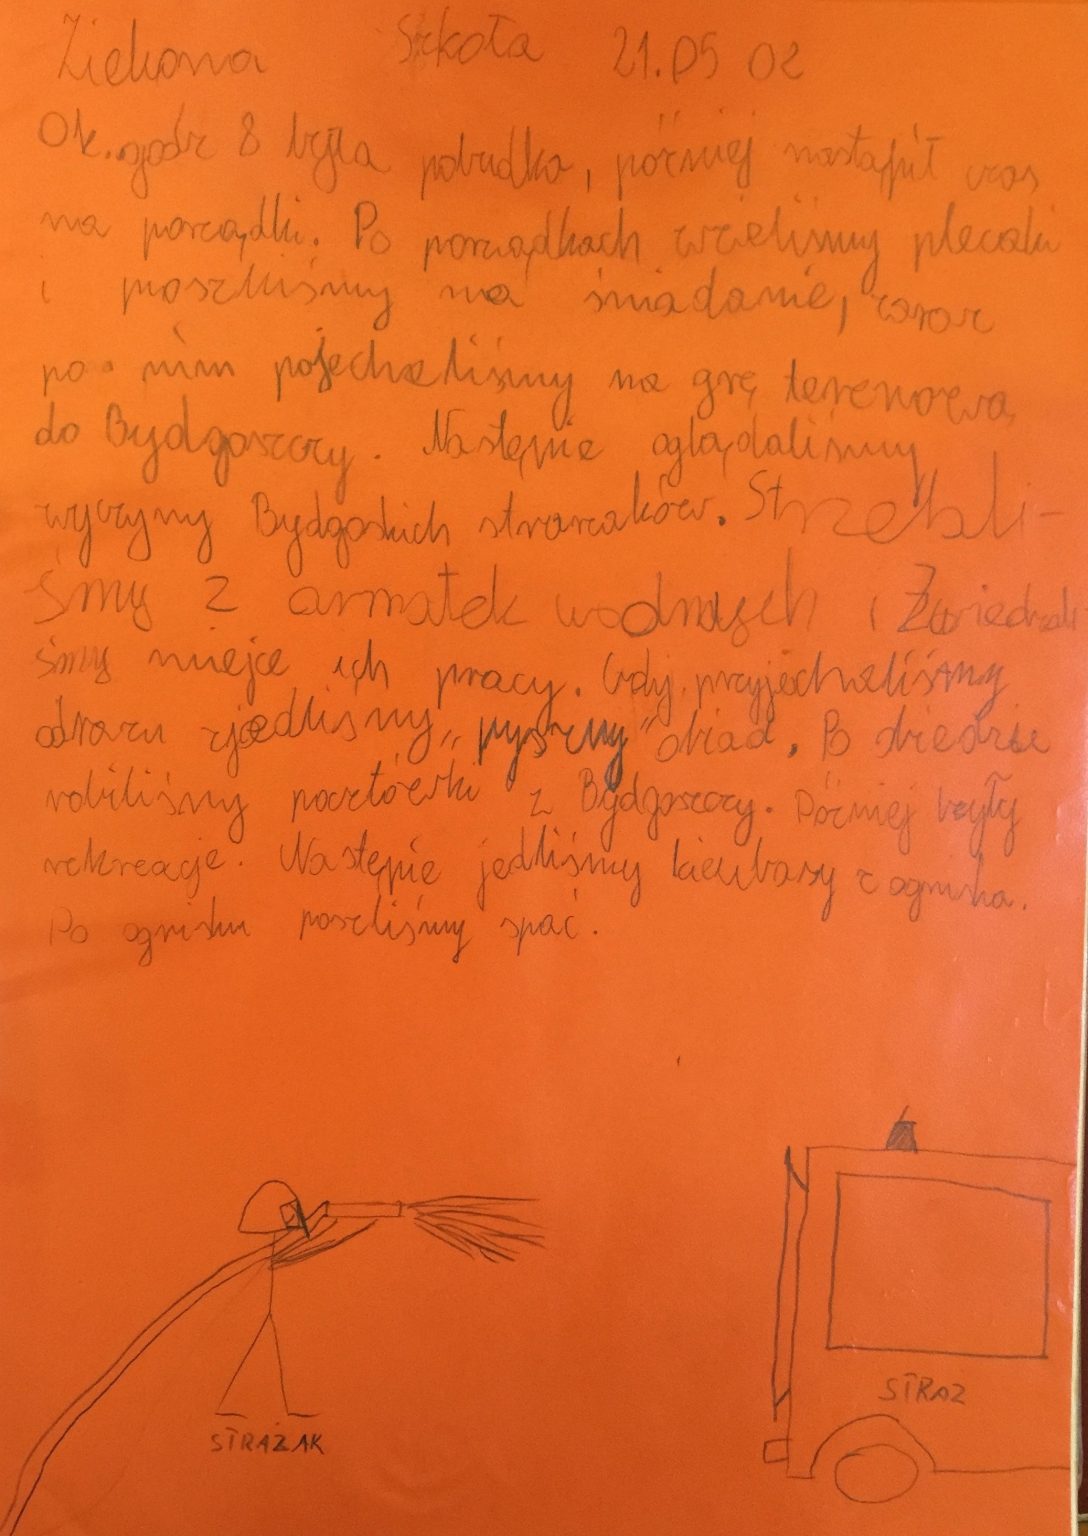 Zielona Szkoła 21.05 02
Ok. godz 8 była pobudka, później nastąpił czas
na porządki. Po porządkach wzieliśmy plecaki
i poszliśmy na śniadanie, zaraz
po nim pojechaliśmy na grę terenową
do Bydgoszczy. Następnie oglądaliśmy
wyczyny Bydgoskich strażaków. Strzelali-
śmy z armatek wodnych i Zwiedzali
śmy miejce ich pracy. Gdy przyjechaliśmy
odrazu zjedliśmy „pyszny" obiad. Po obiedzie
robiliśmy pocztówki z Bydgoszczy. Później były
rekreacje. Następie jedliśmy kiełbasy z ogniska.
Po ognisku poszliśmy spać.
STRAŻ
STRAŻAK